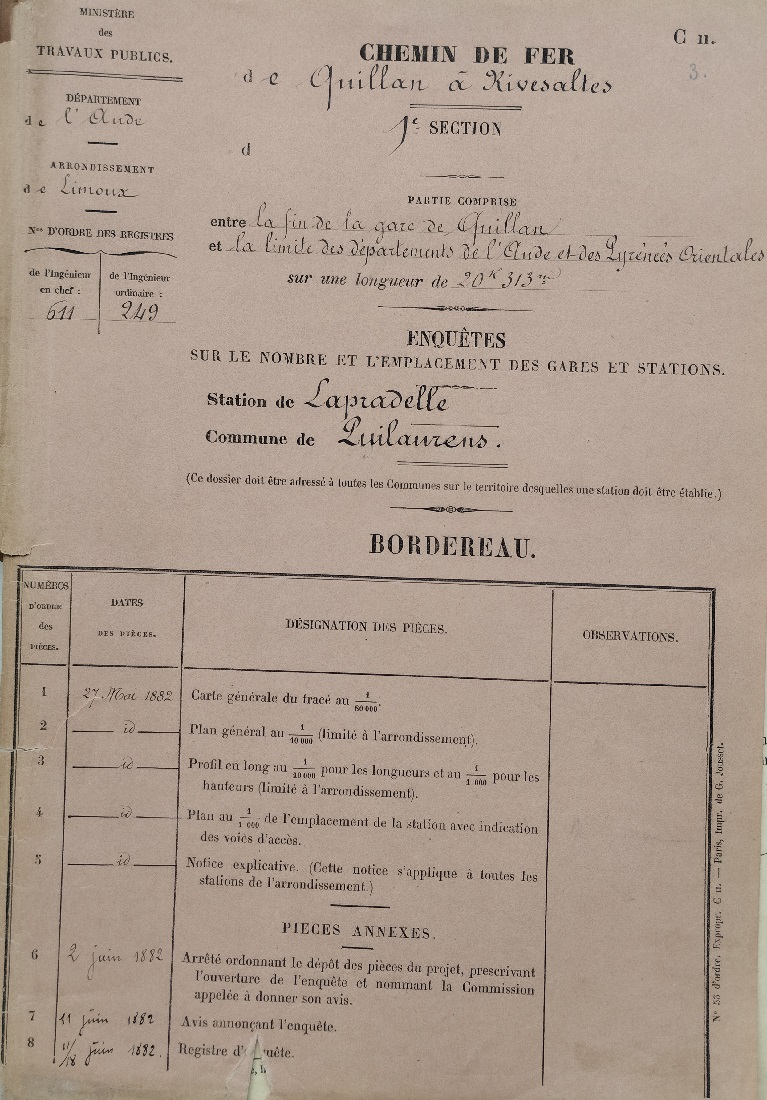 MINISTÈRE
des
TRAVAUX PUBLICS.
DÉPARTEMENT
de l'Aude
ARRONDISSEMENT
de Limoux
Nos D'ORDRE DES REGISTRES
de l'Ingénieur
en chef :
611
de l'Ingénieur
ordinaire :
249
C 11.
3.
CHEMIN DE FER
de Quillan à Rivesaltes
1e SECTION
d
PARTIE COMPRISE
entre la fin de la gare de Quillan
et la limite des départements de l'Aude et des Pyrénées Orientales
sur une longueur de 20k 313m
ENQUÊTES
SUR LE NOMBRE ET L'EMPLACEMENT DES GARES ET STATIONS.
Station de Lapradelle
Commune de Puilaurens.
(Ce dossier doit être adressé à toutes les Communes sur le territoire desquelles une station doit être établie.)
BORDEREAU.
NUMÉROS
D'ORDRE
des
PIÈCES.
DATES
DES PIÈCES.
DÉSIGNATION DES PIÈCES.
OBSERVATIONS.
1 27 Mai 1882 Carte générale du tracé au 1/80 000.
2 id Plan général au 1/10 000 (limité à l'arrondissement).
3 id Profil en long au 1/10 000 pour les longueurs et au 1/1 000 pour les
hauteurs (limité à l'arrondissement).
4 id Plan au 1/1 000 de l'emplacement de la station avec indication
des voies d'accès.
5 id Notice explicative. (Cette notice s'applique à toutes les
stations de l'arrondissement.)
PIÈCES ANNEXES.
6 2 juin 1882 Arrêté ordonnant le dépôt des pièces du projet, prescrivant
l'ouverture de l'enquête et nommant la Commission
appelée à donner son avis.
7 11 juin 1882 Avis annonçant l'enquête.
8 11/18 juin 1882. Registre d'enquête.
N° 53 d'ordre. Expropr. C 11. — Paris, Impr. de G. Jousset.